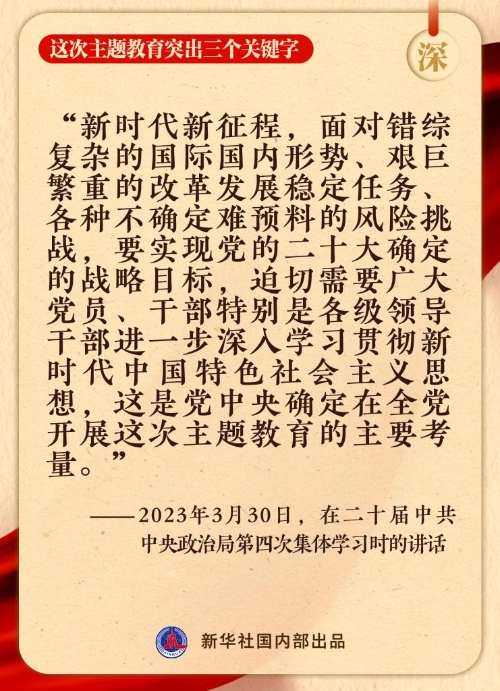 这次主题教育突出三个关键字
深
“新时代新征程，面对错综
复杂的国际国内形势、艰巨
繁重的改革发展稳定任务、
各种不确定难预料的风险挑
战，要实现党的二十大确定
的战略目标，迫切需要广大
党员、干部特别是各级领导
干部进一步深入学习贯彻新
时代中国特色社会主义思
想，这是党中央确定在全党
开展这次主题教育的主要考
量。”
——2023年3月30日，在二十届中共
中央政治局第四次集体学习时的讲话
新华社国内部出品